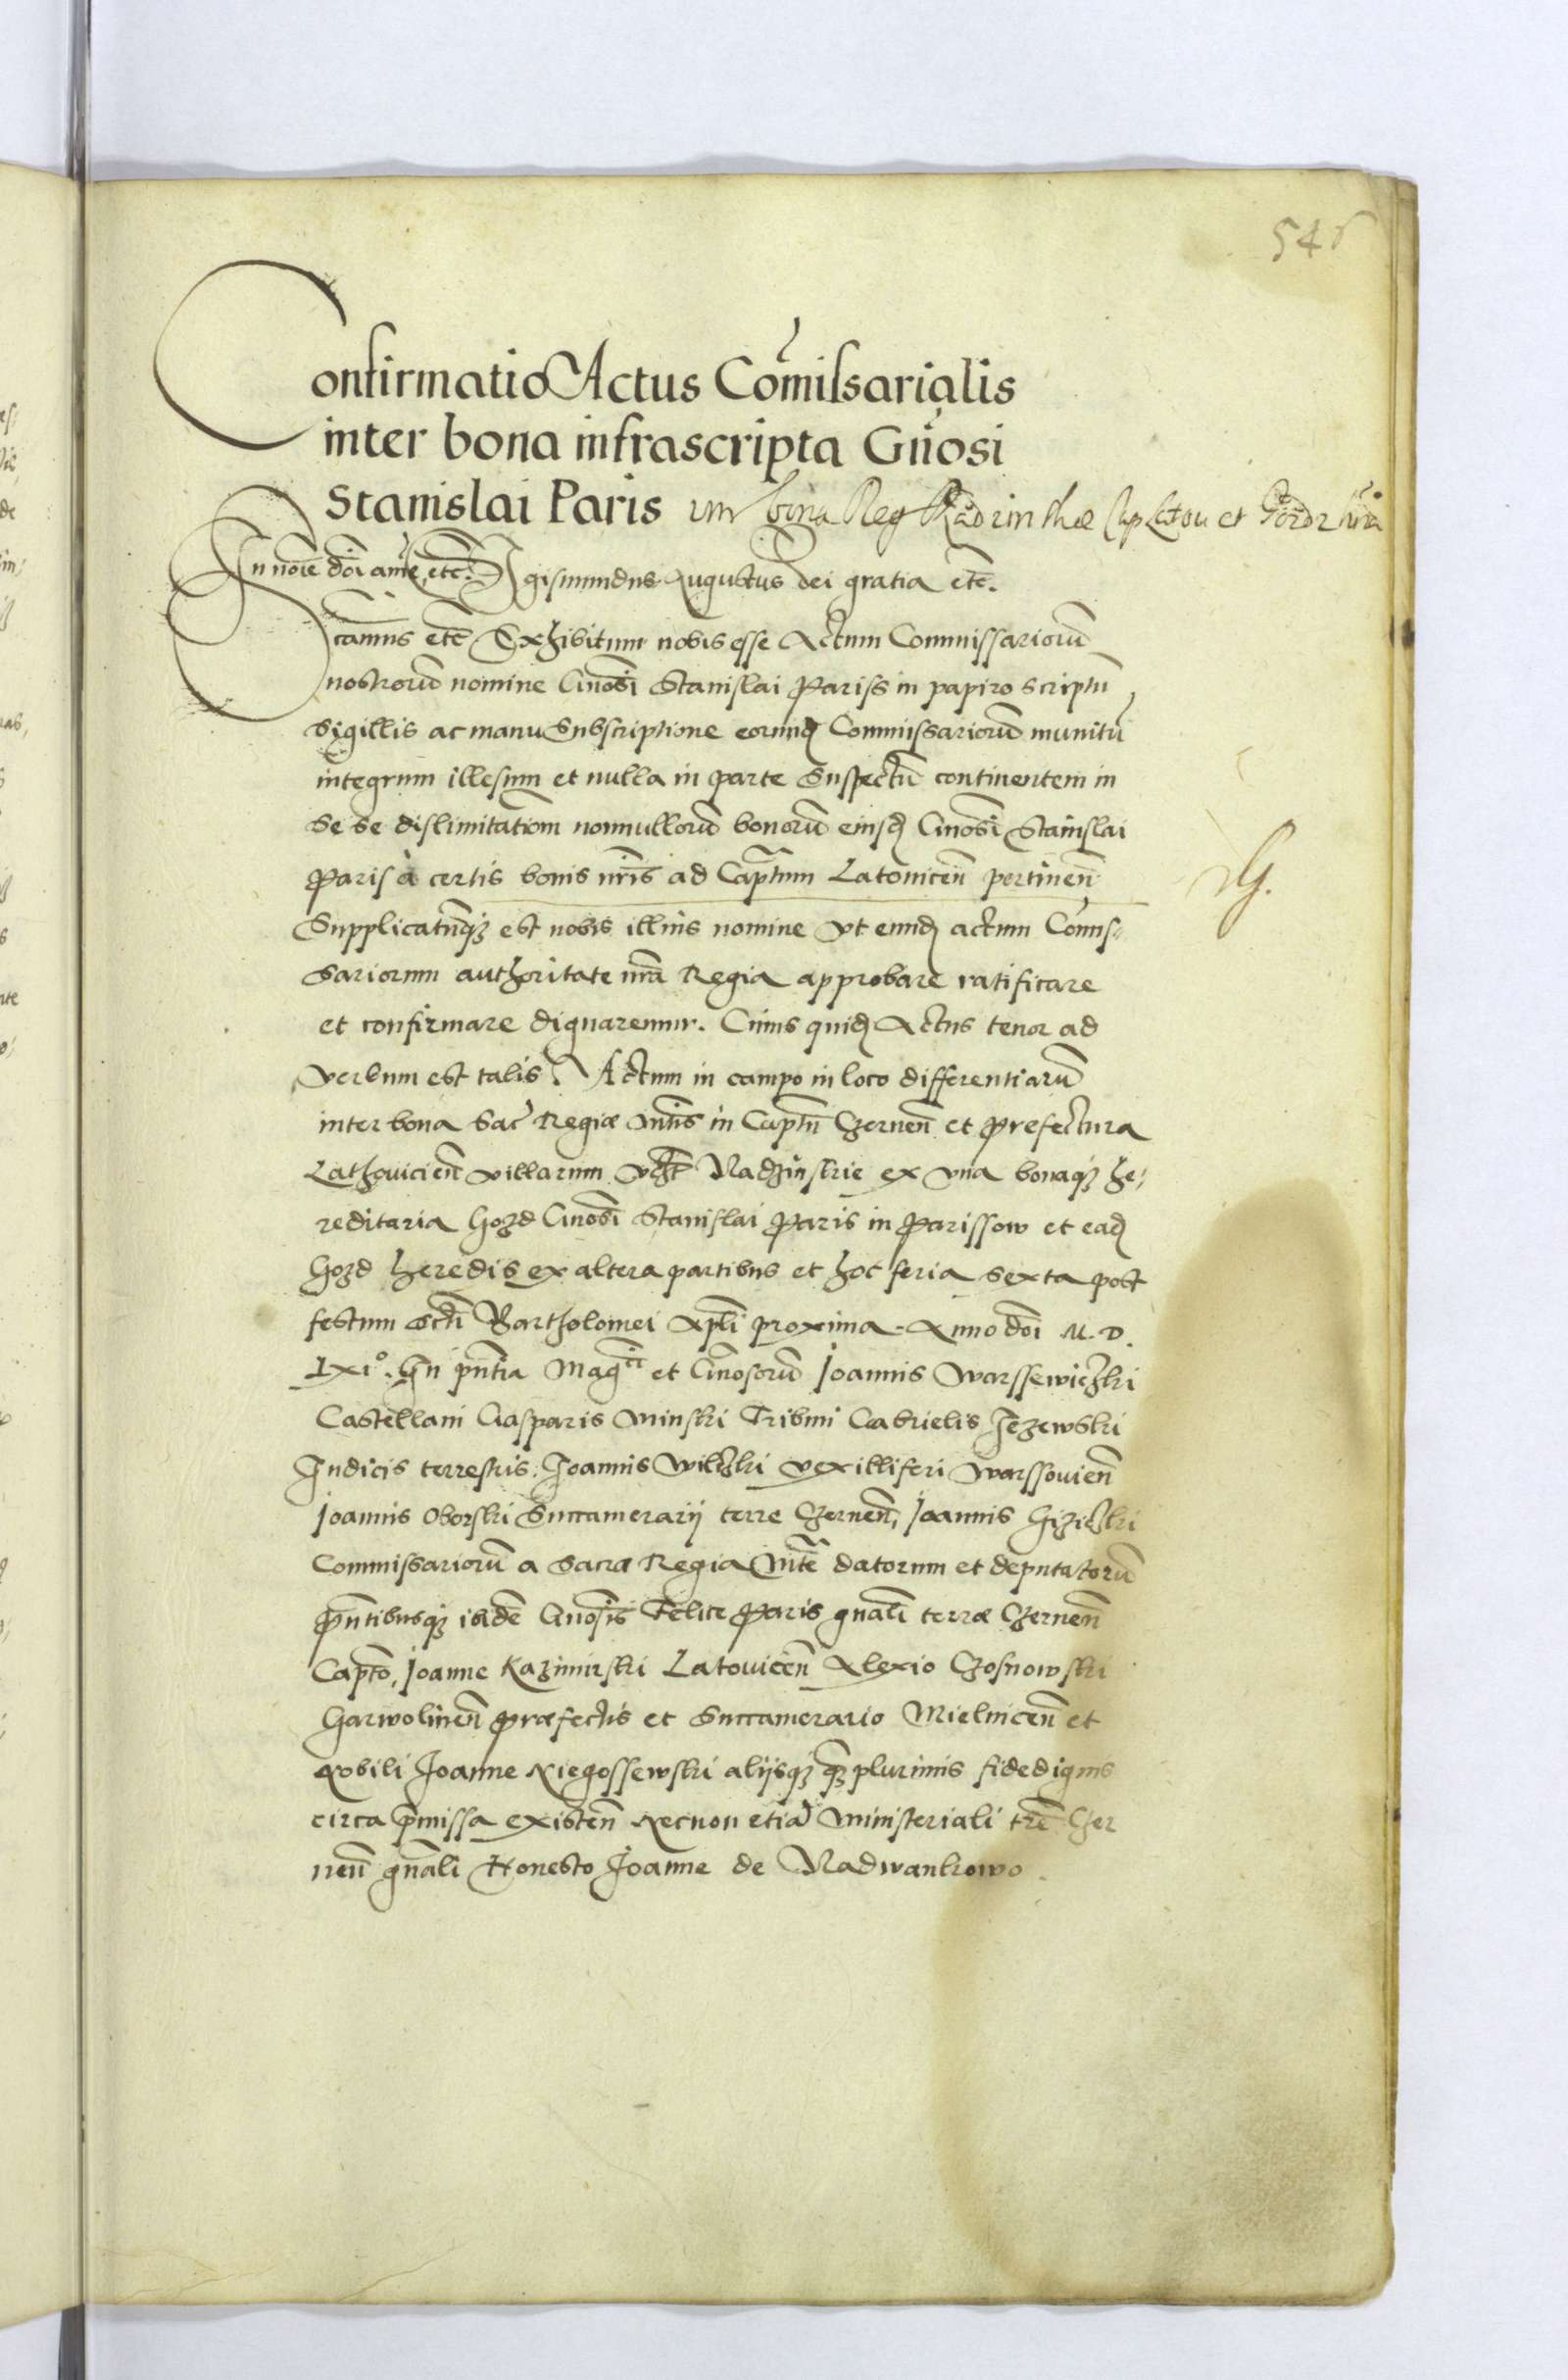 546
Confirmatio Actus Com̃issarialis
inter bona infrascripta Gñosi
Stanislai Paris inr bona Reg et
In noĩe dñi amẽ, etc̃. Sigismundus Augustus dei gratia etc̃.
Significamus etc̃ Exhibitum nobis esse Actum Commissariorũ
nostrorũ nomine Gñosi Stanislai Pariss in papiro scriptũ
sigillis ac manu Subscriptione eorund̃ Commissariorũ munitũ
integrum illesum et nulla in parte Suspectũ continentem in
se se dislimitatiom̃ nonnullorũ bonorũ eiusd̃ Gñosi Stanislai
Paris à certis bonis nr̃is ad Capt̃um Latouicen̄ pertinen̄
Supplicatũq́ꝫ est nobis illius nomine vt eund̃ actum Com̃is-
sariorum authoritate nr̃a Regia approbare ratificare
et confirmare dignaremur. Cuius quid̃ Actus tenor ad
verbum est talis. Actum in campo in loco differentiarũ
inter bona Sac̃ Regiæ Mt̃is in Capt̃u Czernen̄ et prefectura
Lathouicien̄ villarum vz̃ Radzinskie ex vna bonaq́ꝫ he-
reditaria Gozd Gñosi Stanislai Paris in Parissow et ead̃
Gozd heredis ex altera partibus et hoc feria sexta post
festum Sct̃i Bartholomei Apl̃i proxima. Anno dñi M. D.
LXIº. In pñtia Mag̃ci et Gñosorũ Joannis Warssewiczki
Castellani Gasparis Minski Tribuni Gabrielis Jezewski
Iudicis terrestris. Joannis Wilczki vexilliferi Warssouien̄
Joannis Oborski Succamerarij terre Czernen̄, Joannis Giziczki
Commissariorũ a Sacra Regia Mt̃e datorum et deputatorũ
pñtibusq́ꝫ ibidẽ Gñosis Felice Paris gnãli terræ Czernen̄
Capt̃o, Joanne Kazimirski Latouicen̄ Alexio Czosnowski
Garwolinen̄ præfectis et Succamerario Mielnicen̄ et
Nobili Joanne Niegossewski alijsq́ꝫ q̃ꝫ plurimis fidedignis
circa p̃missa existen̄ Necnon etiã Ministeriali tr̃e Czer
nen̄ gnãli Honesto Joanne de Radwankowo.